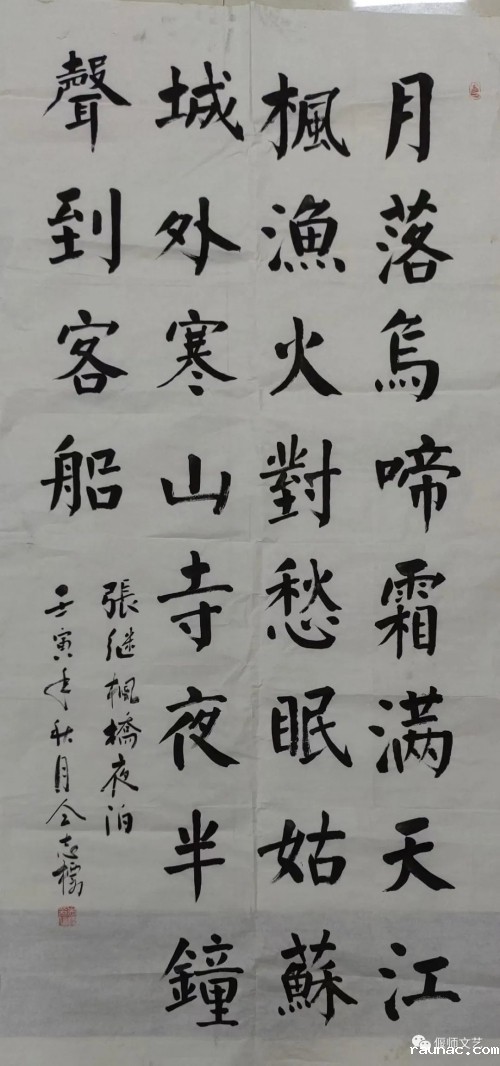 月落烏啼霜满天江
楓漁火對愁眠姑蘇
城外寒山寺夜半鐘
聲到客船
張继楓橋夜泊
壬寅年秋月仝志
偃师文艺
raunac.com